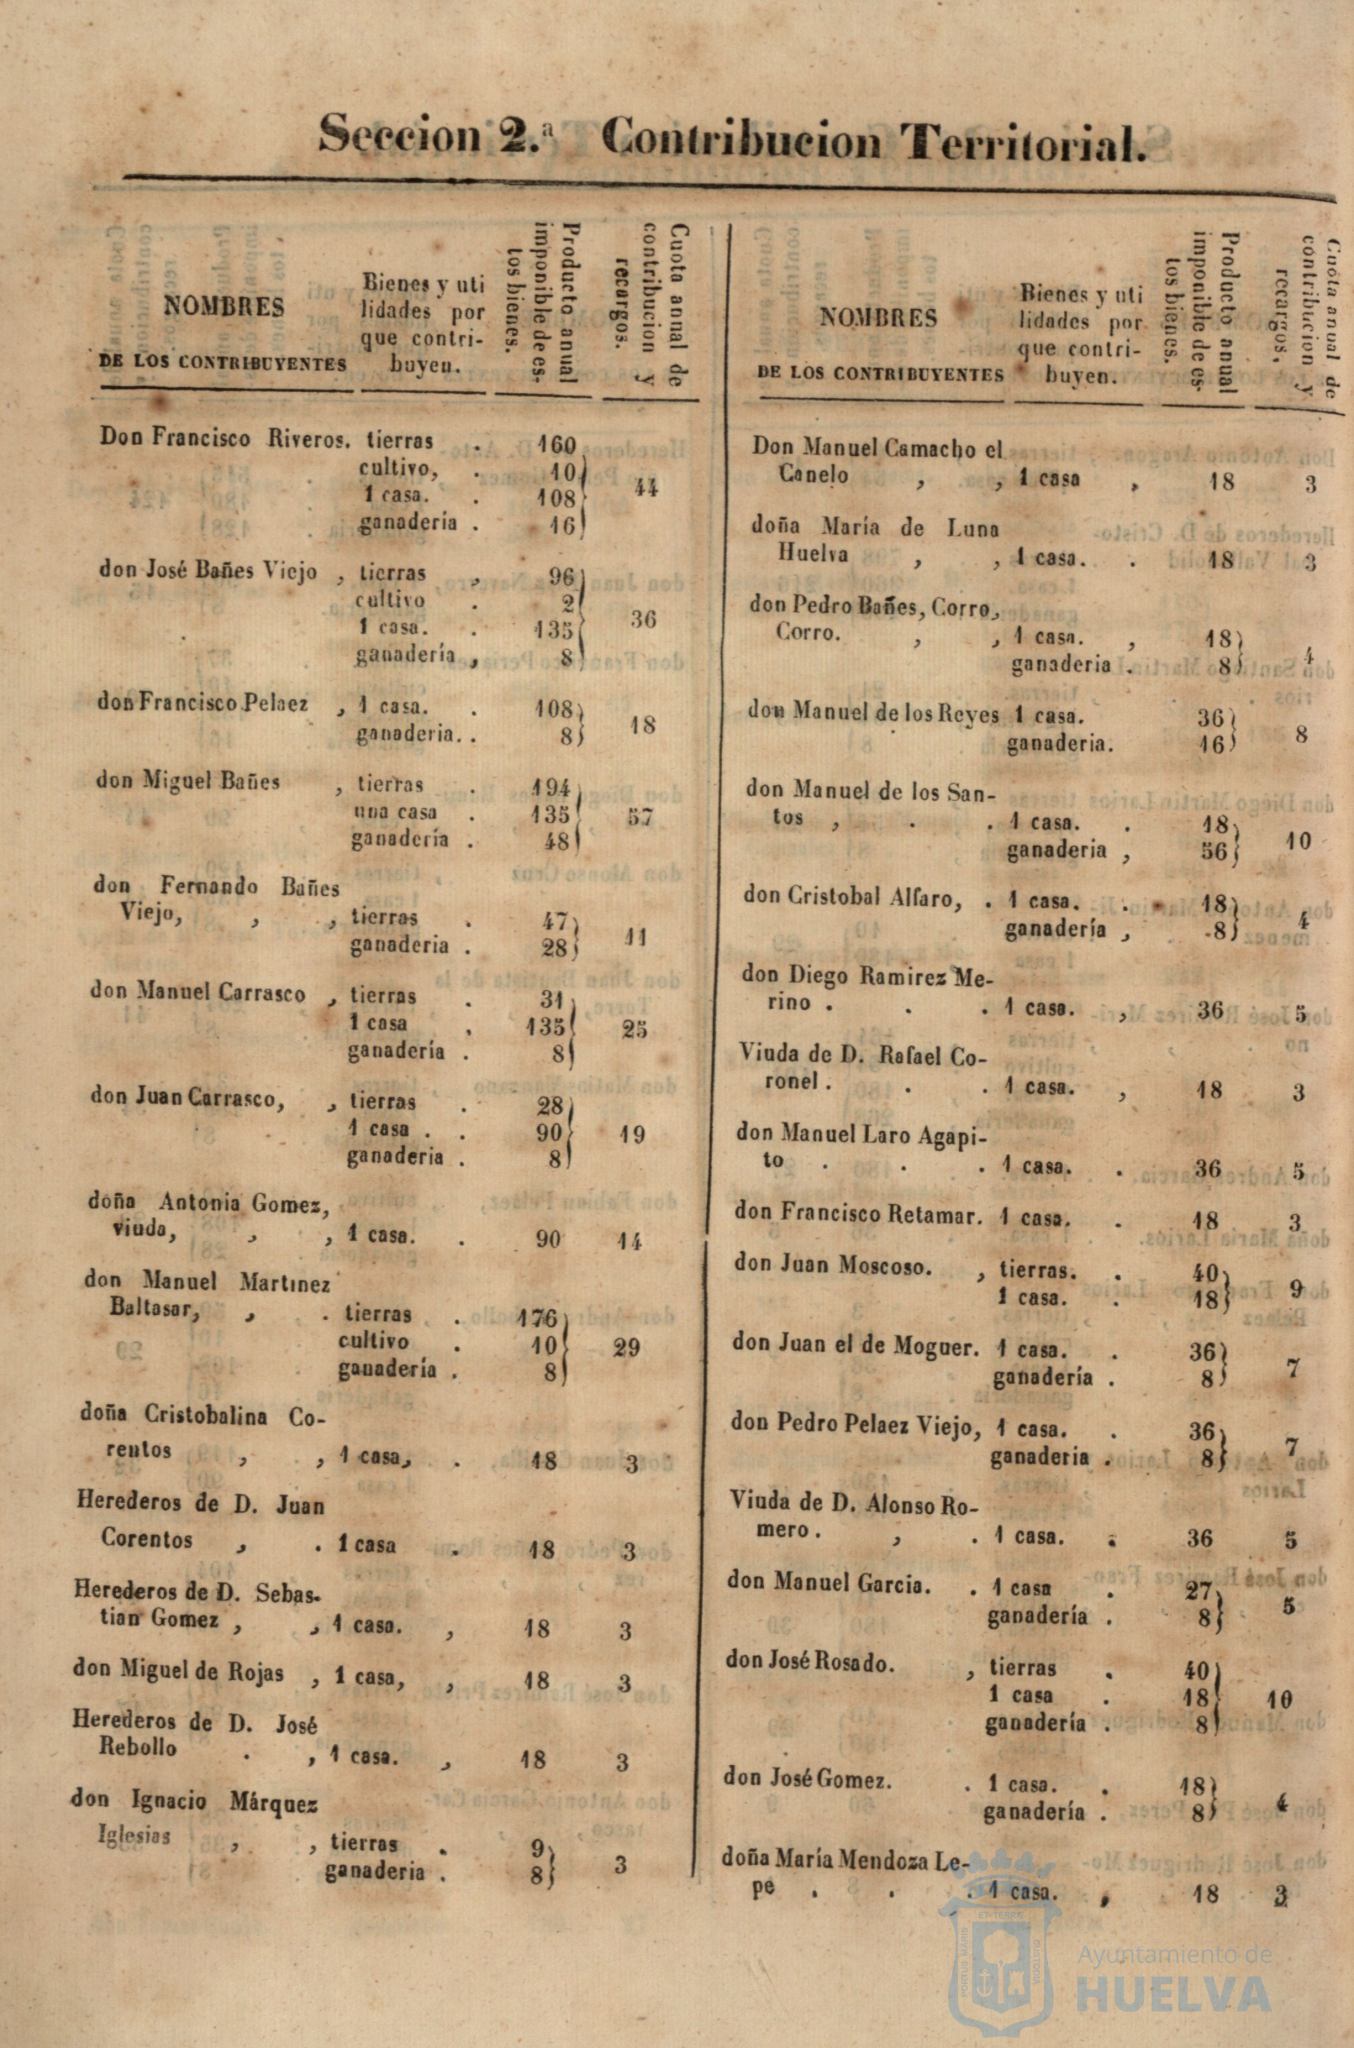 Seccion 2.ª Contribucion Territorial.
NOMBRES
DE LOS CONTRIBUYENTES
Bienes y uti
lidades por
que contri-
buyen.
Producto anual
imponible de es-
tos bienes.
Cuota anual de
contribucion y
recargos.
Don Francisco Riveros. tierras . 160
cultivo, . 10
1 casa. . 108 44
ganadería . 16
don José Bañes Viejo , tierras , 96
cultivo . 2
1 casa. . 135 36
ganadería , 8
don Francisco Pelaez , 1 casa. . 108
ganaderia. . 8 18
don Miguel Bañes , tierras . 194
una casa . 135 57
ganadería . 48
don Fernando Bañes
Viejo, , , tierras . 47
ganaderia . 28 11
don Manuel Carrasco , tierras . 31
1 casa , 135 25
ganadería . 8
don Juan Carrasco, , tierras . 28
1 casa . . 90 19
ganaderia . 8
doña Antonia Gomez,
viuda, , , 1 casa. . 90 14
don Manuel Martinez
Baltasar, , . tierras . 176
cultivo . 10 29
ganadería . 8
doña Cristobalina Co-
rentos , , 1 casa, . 18 3
Herederos de D. Juan
Corentos , . 1 casa . 18 3
Herederos de D. Sebas-
tian Gomez , , 1 casa. , 18 3
don Miguel de Rojas , 1 casa, , 18 3
Herederos de D. José
Rebollo . , 1 casa. , 18 3
don Ignacio Márquez
Iglesias , , tierras . 9
ganaderia . 8 3
NOMBRES
DE LOS CONTRIBUYENTES
Bienes y uti
lidades por
que contri-
buyen.
Producto anual
imponible de es-
tos bienes.
Cuóta anual de
contribucion y
recargos.
Don Manuel Camacho el
Canelo , , 1 casa , 18 3
doña María de Luna
Huelva , , 1 casa. . 18 3
don Pedro Bañes, Corro,
Corro. , , 1 casa. , 18
ganaderia . 8 4
don Manuel de los Reyes 1 casa. 36
ganaderia. 16 8
don Manuel de los San-
tos , . . 1 casa. . 18
ganaderia , 56 10
don Cristobal Alfaro, . 1 casa. . 18
ganadería , 8 4
don Diego Ramirez Me-
rino . . . 1 casa. , 36 5
Viuda de D. Rafael Co-
ronel . . . 1 casa. , 18 3
don Manuel Laro Agapi-
to . . . 1 casa. . 36 5
don Francisco Retamar. 1 casa. . 18 3
don Juan Moscoso. , tierras. . 40
1 casa. . 18 9
don Juan el de Moguer. 1 casa. . 36
ganadería . 8 7
don Pedro Pelaez Viejo, 1 casa. . 36
ganaderia . 8 7
Viuda de D. Alonso Ro-
mero . , . 1 casa. . 36 5
don Manuel Garcia. . 1 casa . 27
ganadería . 8 5
don José Rosado. , tierras . 40
1 casa . 18 10
ganadería . 8
don José Gomez. . 1 casa. . 18
ganadería . 8 4
doña María Mendoza Le-
pe . . . 1 casa. , 18 3
Ayuntamiento de
HUELVA